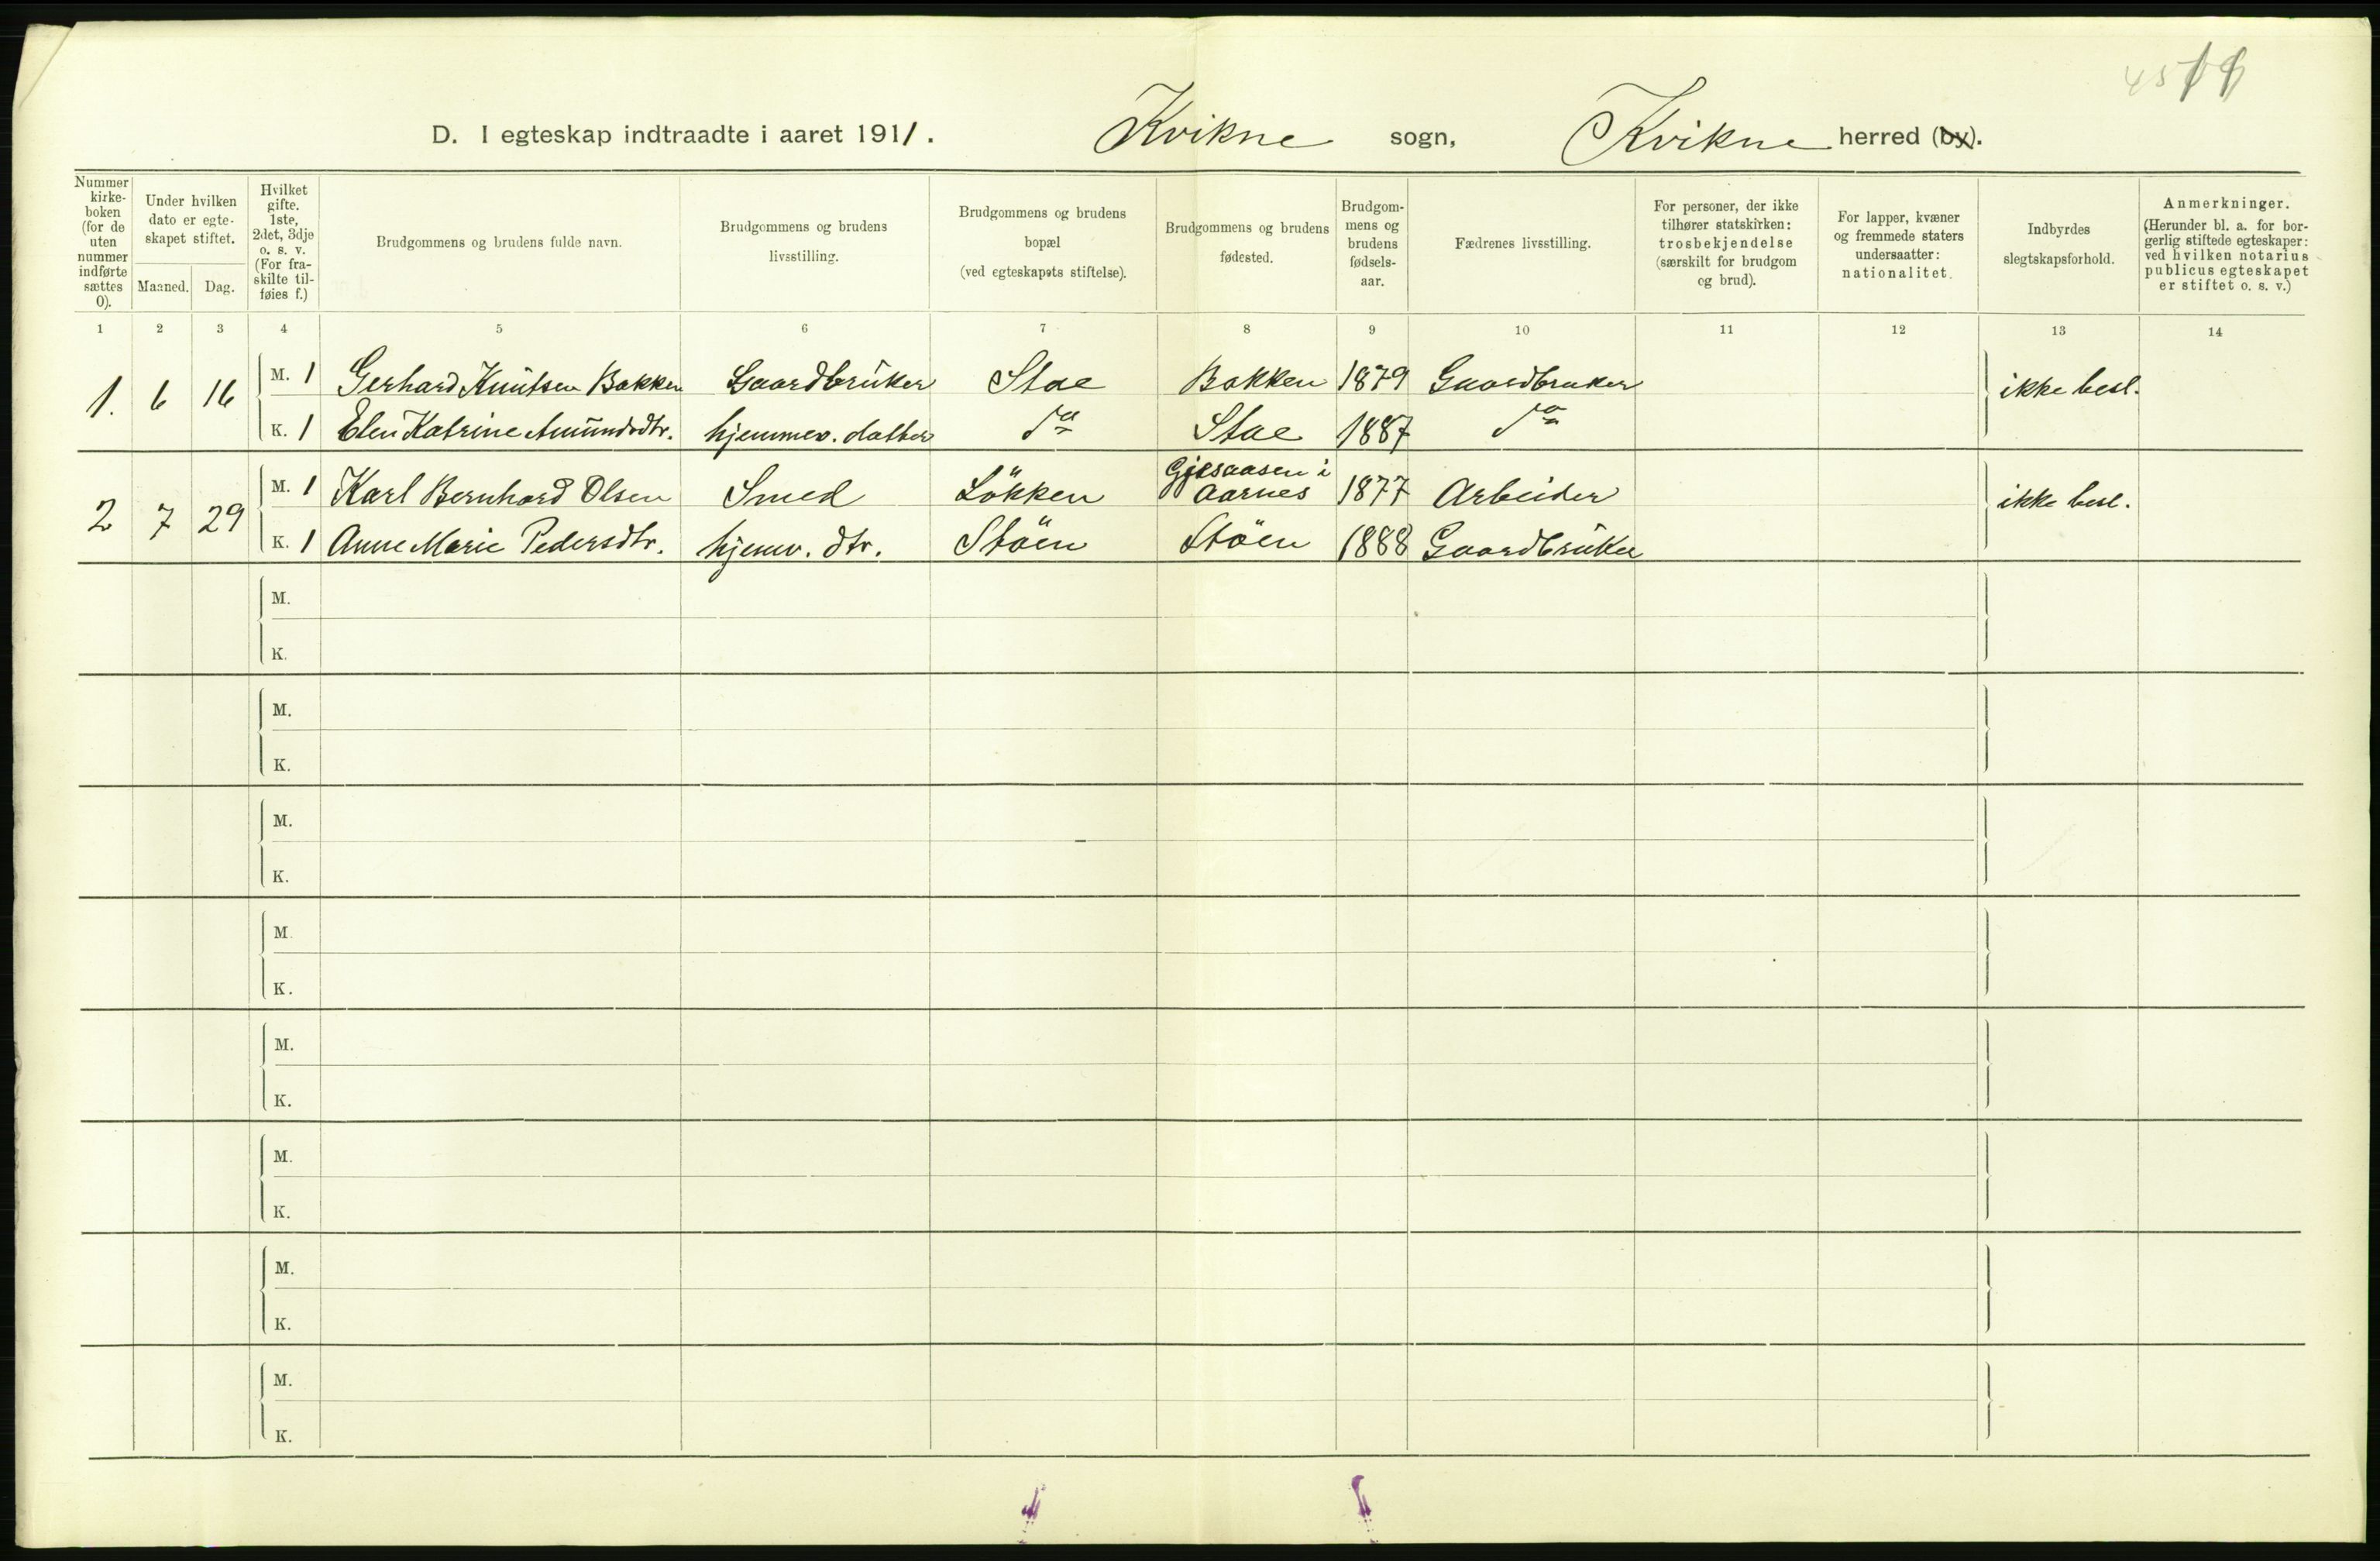 D. I egteskap indtraadte i aaret 1911. Kvikne sogn, Kvikne herred (by).
Nummer
kirke-
boken
(for de
uten
nummer
indførte
sættes
0).
Under hvilken
dato er egte-
skapet stiftet.
Maaned. Dag.
Hvilket
gifte.
1ste,
2det, 3dje
o. s. v.
(For fra-
skilte til-
føies f.)
Brudgommens og brudens fulde navn.
Brudgommens og brudens
livsstilling.
Brudgommens og brudens
bopæl
(ved egteskapets stiftelse).
Brudgommens og brudens
fødested.
Brudgom-
mens og
brudens
fødsels-
aar.
Fædrenes livsstilling.
For personer, der ikke
tilhører statskirken:
trosbekjendelse
(særskilt for brudgom
og brud).
For lapper, kvæner
og fremmede staters
undersaatter:
nationalitet.
Indbyrdes
slegtskapsforhold.
Anmerkninger.
(Herunder bl. a. for bor-
gerlig stiftede egteskaper:
ved hvilken notarius
publicus egteskapet
er stiftet o. s. v.)
1 2 3 4 5 6 7 8 9 10 11 12 13 14
1. 6 16 M. 1 Gerhard Knutsen Bakken Gaardbruker Stae Bakken 1879 Gaardbruker ikke besl.
K. 1 Elen Katrine Amundsdtr. hjemmev. datter do Stae 1887 do
2 7 29 M. 1 Karl Bernhard Olsen Smed Lökken Gjesaasen i Aarnes 1877 Arbeider ikke besl.
K. 1 Anne Marie Pedersdtr. hjemv. dtr. Stöen Stöen 1888 Gaardbruker
M.
K.
M.
K.
M.
K.
M.
K.
M.
K.
M.
K.
M.
K.
M.
K.